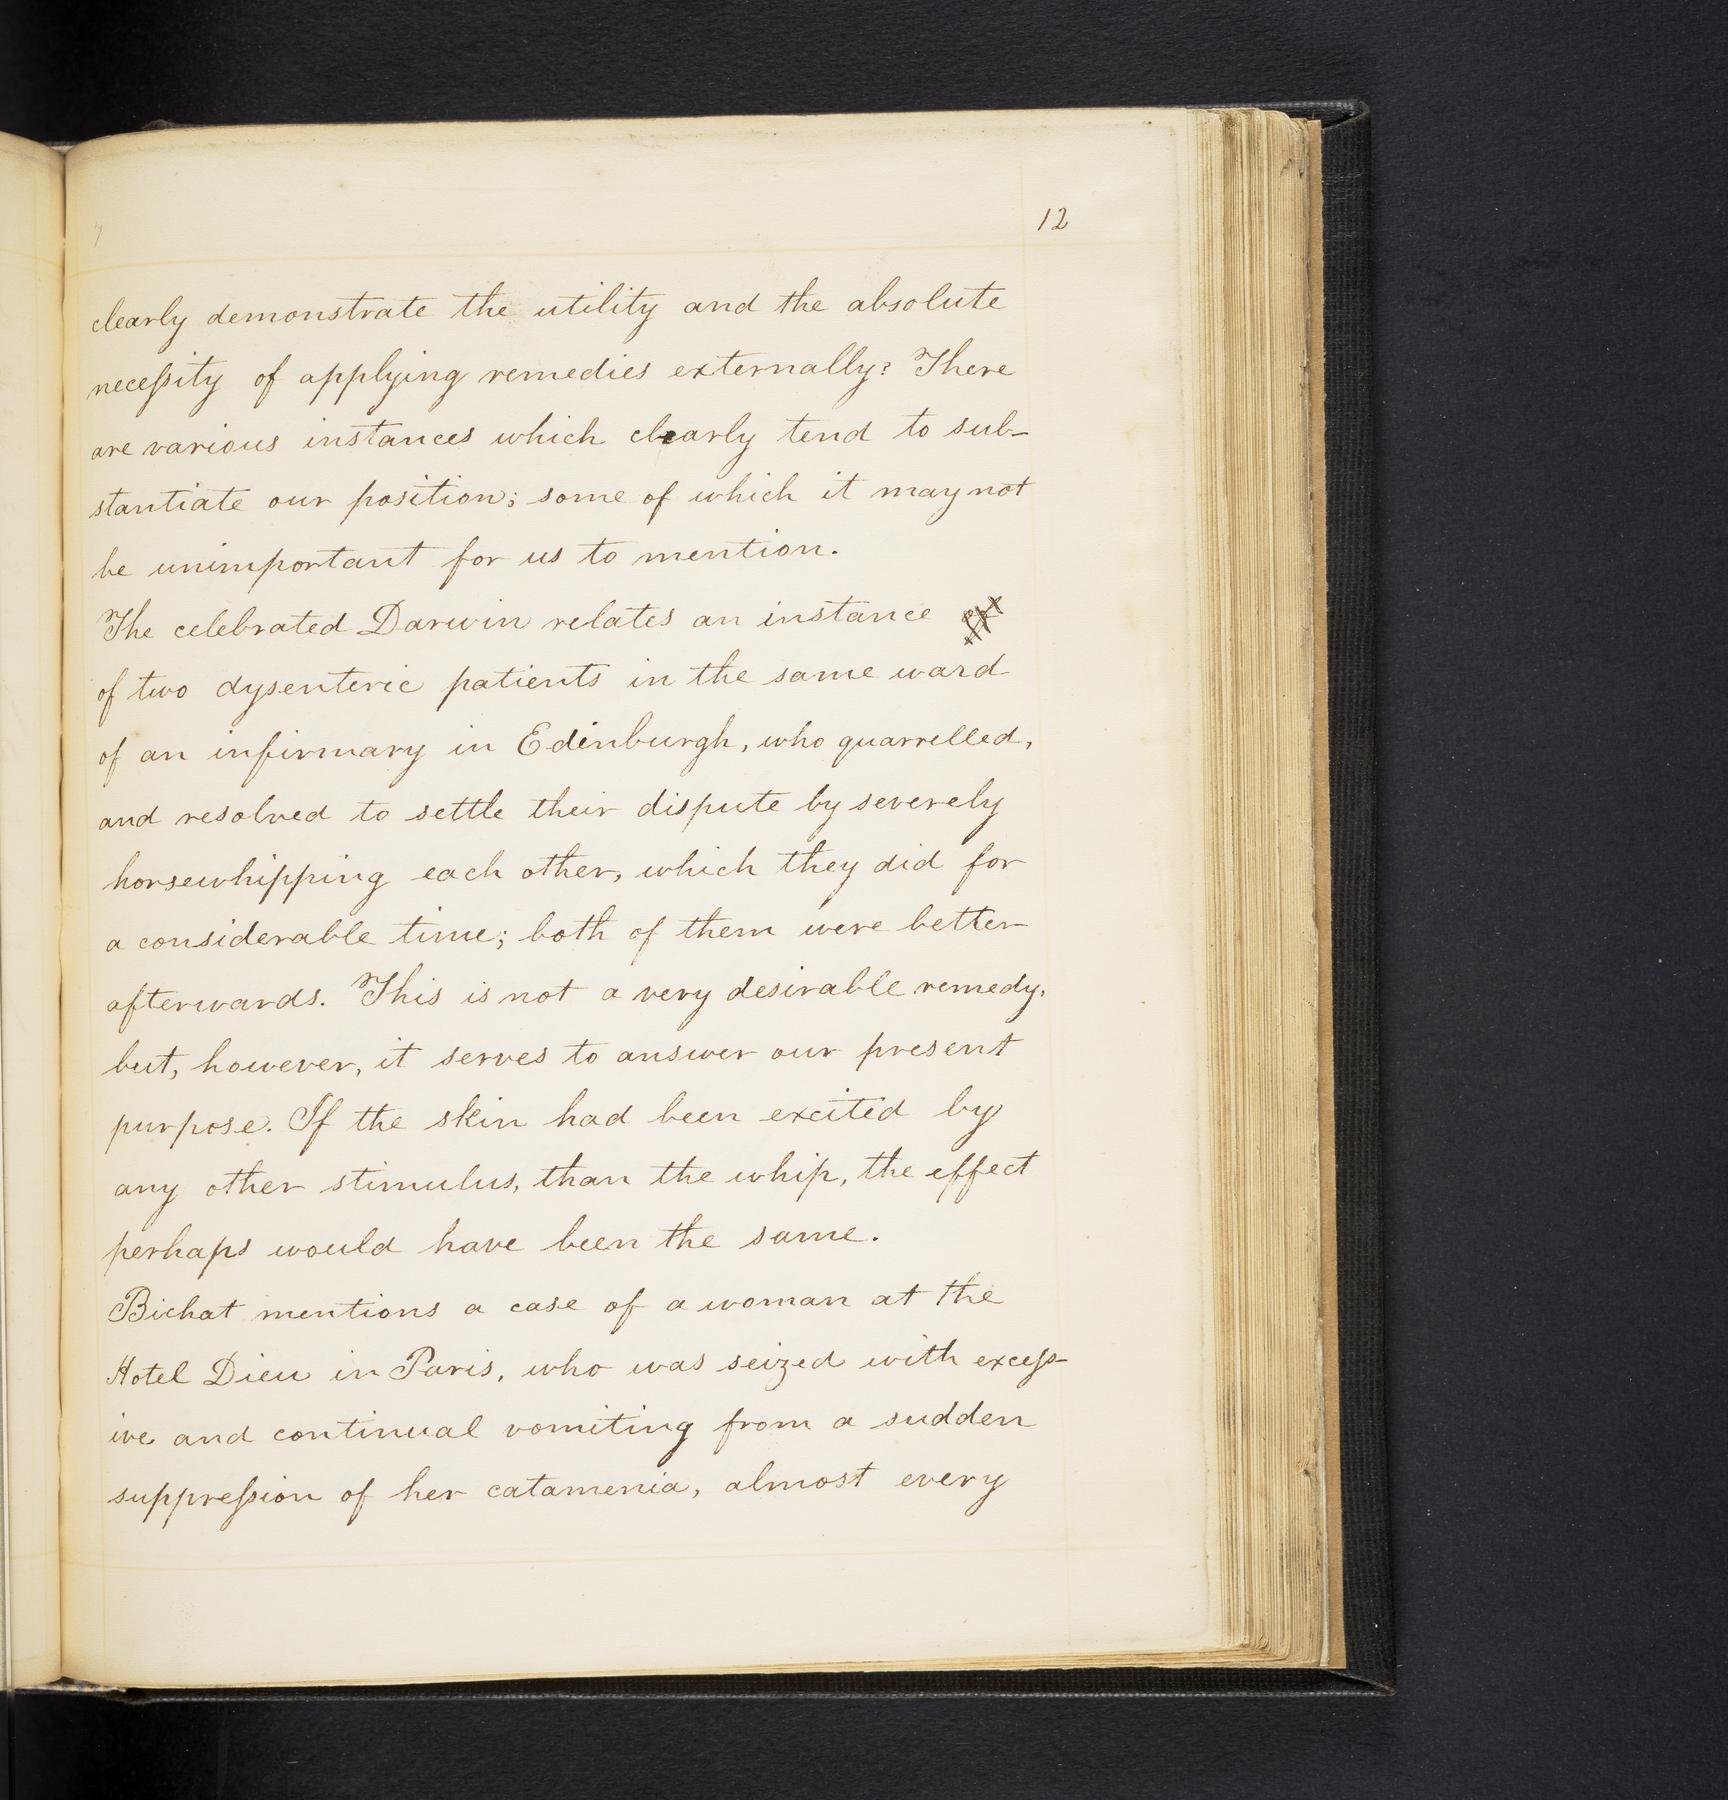 12
clearly demonstrate the utility and the absolute
neceſsity of applying remedies externally? There
are various instances which clearly tend to sub-
stantiate our position; some of which it may not
be unimportant for us to mention.
The celebrated Darwin relates an instance
of two dysenteric patients in the same ward
of an infirmary in Edinburgh, who quarrelled,
and resolved to settle their dispute by severely
horsewhipping each other, which they did for
a considerable time; both of them were better
afterwards. This is not a very desirable remedy,
but, however, it serves to answer our present
purpose. If the skin had been excited by
any other stimulus, than the whip, the effect
perhaps would have been the same.
Bichat mentions a case of a woman at the
Hotel Dieu in Paris, who was seized with exceſs-
ive and continual vomiting from a sudden
suppreſsion of her catamenia, almost every